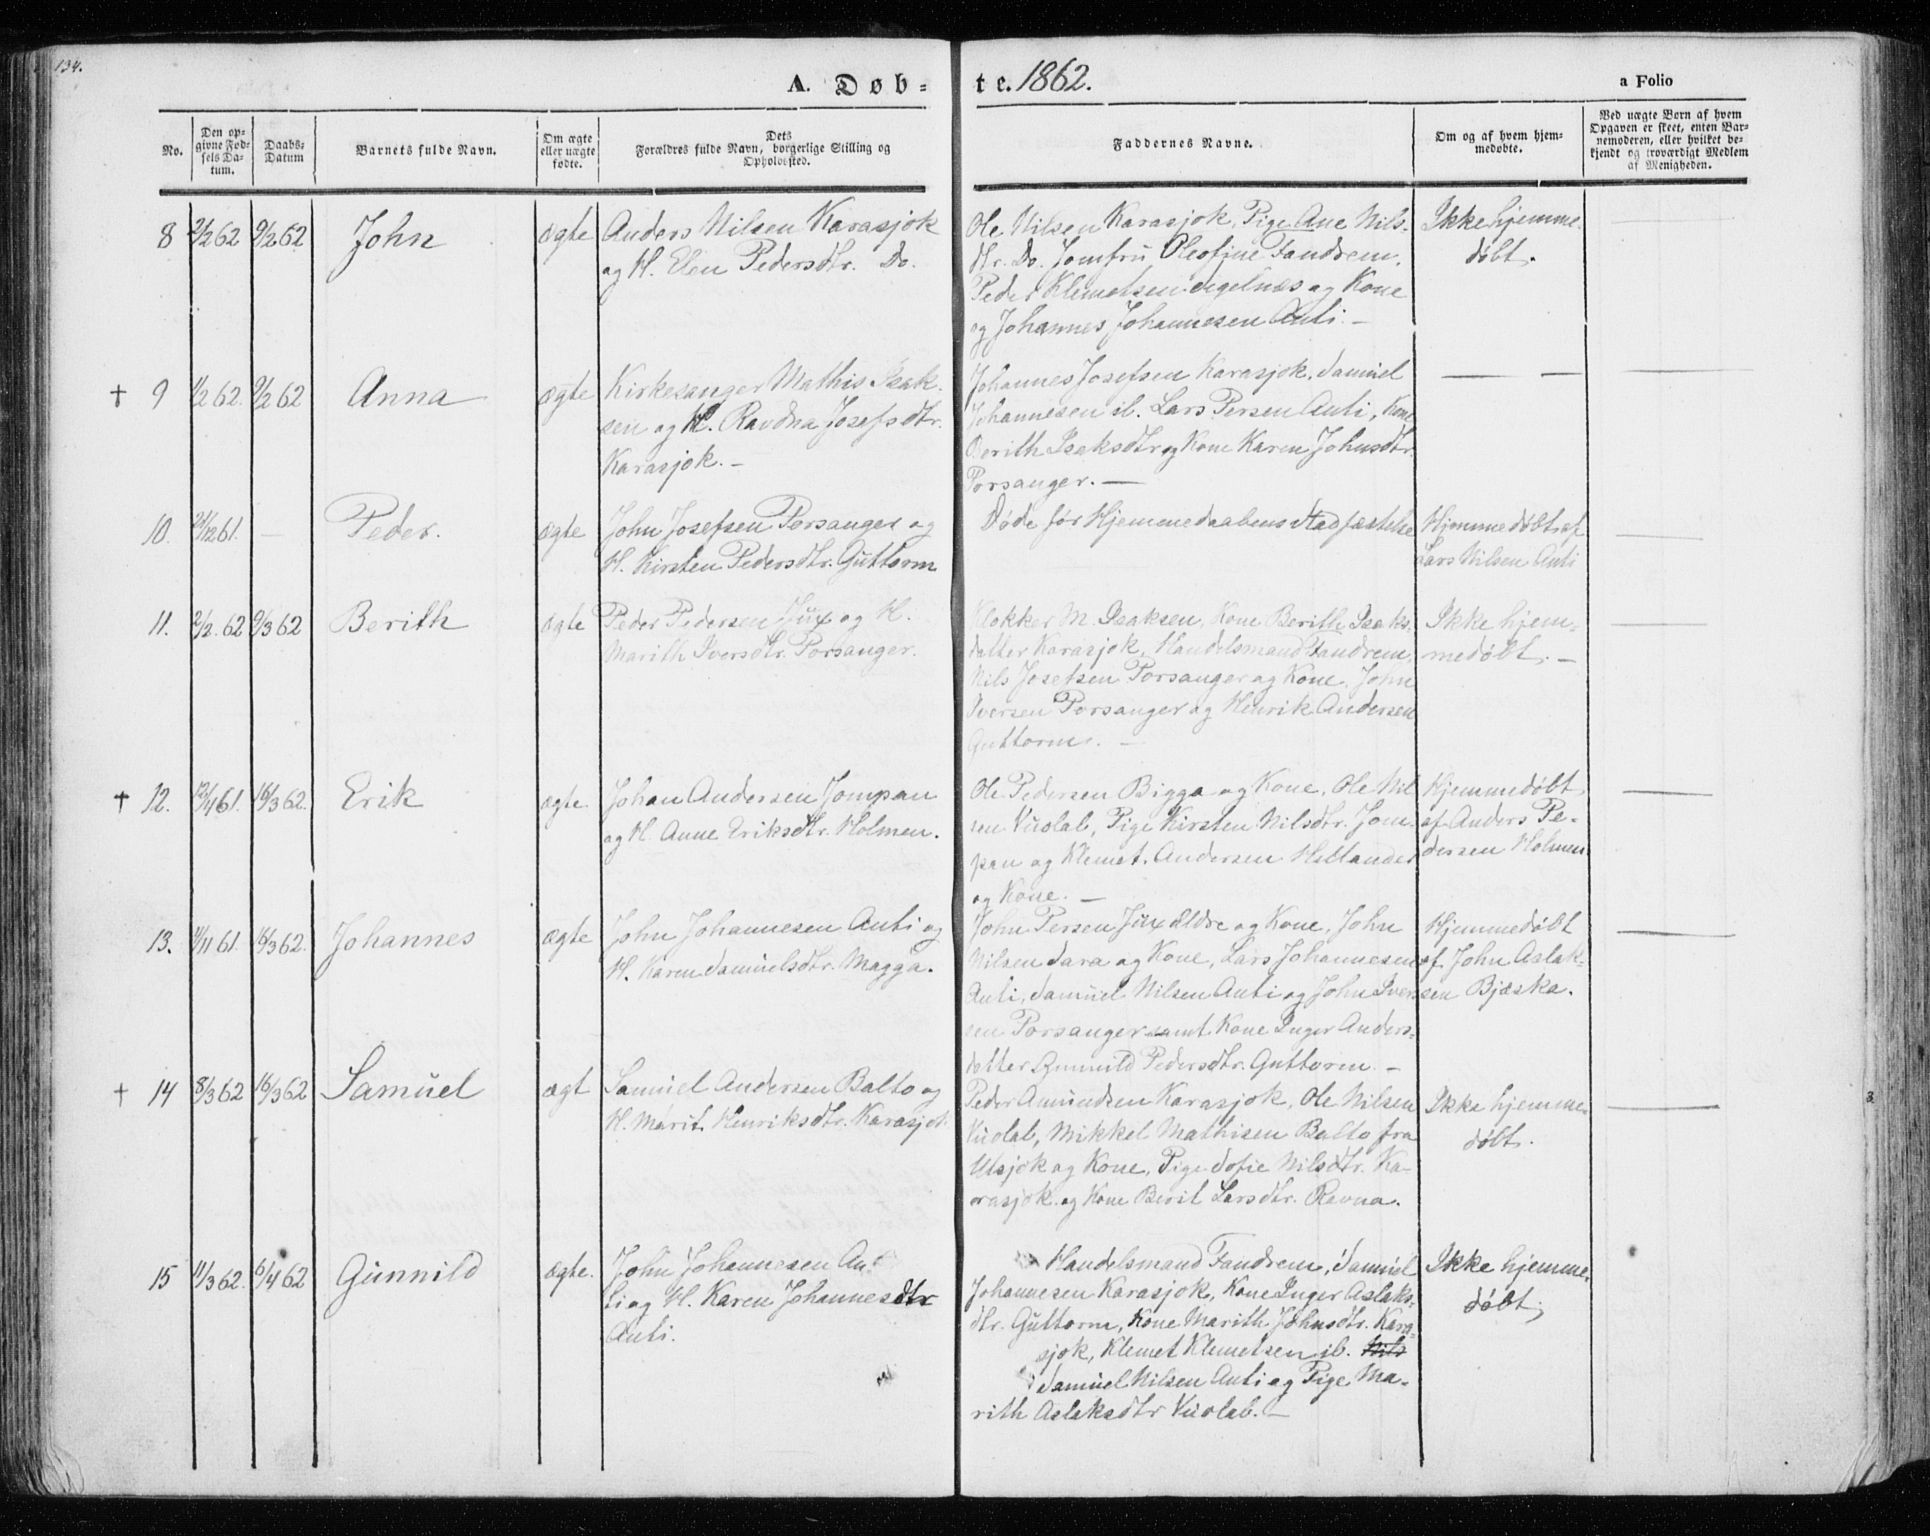 134.
A. Døb-
te. 1862.
a Folio
No.
Den op-
givne Fød-
sels Da-
tum.
Daabs-
Datum
Barnets fulde Navn.
Om ægte
eller uægte
fødte.
Dets
Forældres fulde Navn, borgerlige Stilling og
Opholdssted.
Faddernes Navne.
Om og af hvem hjem-
medøbte.
Ved uægte Børn af hvem
Opgaven er skeet, enten Bar-
nemoderen, eller hvilket be-
kjendt og troværdigt Medlem
af Menigheden.
8 2/2 62 9/2 62 John ægte
Anders Nilsen Karasjok
og H. Elen Pedersdtr. Do.
Ole Nilsen Karasjok, Pige Ane Nils-
dtr. Do. Jomfru Oleofine Fandrem,
Peder Klemetsen og Kone
og Johannes Johannesen Anti. —
Ikke hjemme-
døbt.
† 9 1/2 62. 9/2 62 Anna ægte
Kirkesanger Mathis Isak-
sen og H. Ravdna Josefsdtr.
Karasjok. —
Johannes Josefsen Karasjok, Samuel
Johannesen ib. Lars Persen Anti, Kone
Berith Isaksdtr og Kone Karen Johnsdtr.
Porsanger. —
— —
10. 24/12 61. — Peder. ægte
John Josefsen Porsanger og
H. Kirsten Pedersdtr. Guttorm
Døde før Hjemmedaabens Stadfæstelse
Hjemmedøbt af
Lars Nilsen Anti
11. 2/2. 62 9/3 62 Berith ægte
Peder Pedersen Jux og H.
Marith Iversdtr. Porsanger.
Klokker M. Isaksen, Kone Berith Isaks-
datter Karasjok, Handelsmand Fandrem,
Nils Josefsen Porsanger og Kone, John
Iversen Porsanger og Henrik Andersen
Guttorm. —
Ikke hjem-
medøbt. —
† 12. 12/4 61. 16/3 62. Erik ægte.
Johan Andersen Jompan
og H. Anne Eriksdtr. Holmen.
Ole Pedersen Bigga og Kone, Ole Nil
sen Vuolab, Pige Kirsten Nilsdtr. Jom-
pan og Klemet Andersen Hætlander
og Kone. —
Hjemmedøbt
af Anders Pe-
dersen Holmen
13. 11/11 61. 16/3 62. Johannes ægte
John Johannesen Anti og
H. Karen Samuelsdtr. Magga.
John Persen Jux ældre og Kone, John
Nilsen Sara og Kone, Lars Johannesen
Anti, Samuel Nilsen Anti og John Iver-
sen Porsanger samt Kone Inger Anders-
datter Gunnild Pedersdtr. Guttorm —
Hjemmedøbt
af John Aslak-
sen Bjæska.
† 14 8/3 62 16/3 62 Samuel ægt
Samuel Andersen Balto og
H. Marit Henriksdtr. Karasjok
Peder Amundsen Karasjok, Ole Nilsen
Vuolab, Mikkel Mathisen Balto fra
Utsjok og Kone, Pige Sofie Nilsdtr. Ka-
rasjok og Kone Berit Larsdtr. Ravna.
Ikke hjemme-
døbt.
15 11/3 62. 6/4 62 Gunnild ægte.
John Johannesen An-
ti og H. Karen Johannesdtr
Anti.
Handelsmand Fandrem, Samuel
Johannesen Karasjok, Kone Inger Aslaks-
dtr. Guttorm, Kone Marith Johnsdtr. Kara-
sjok, Klemet Klemetsen ib. Nils
Samuel Nilsen Anti og Pige Ma-
rith Aslaksdtr Vuolab. —
Ikke hjemme-
døbt;